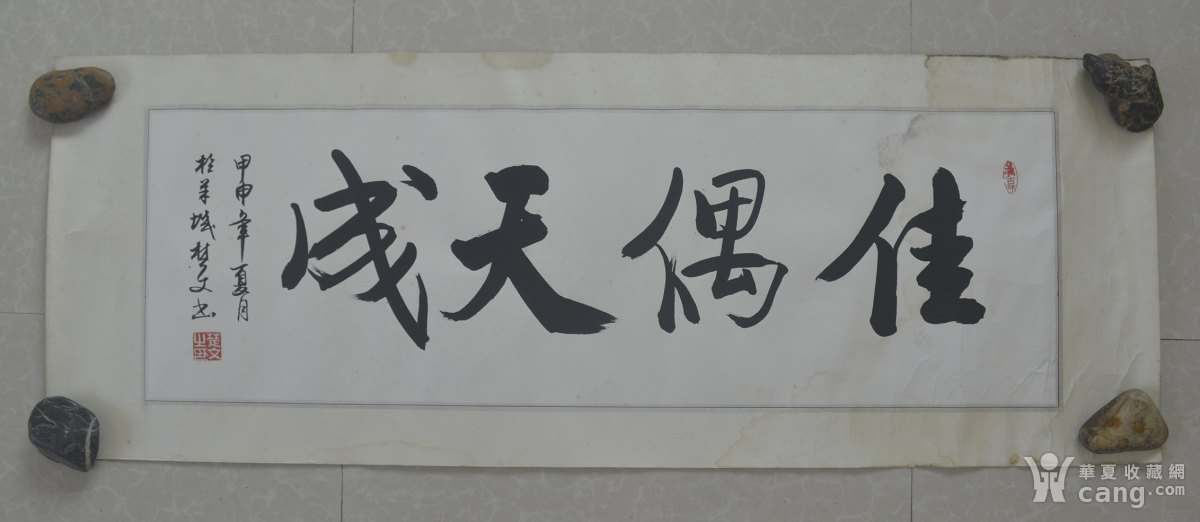 佳偶天成
甲申年夏月
於羊城楚文书
楚文之印
華夏收藏網
cang.com